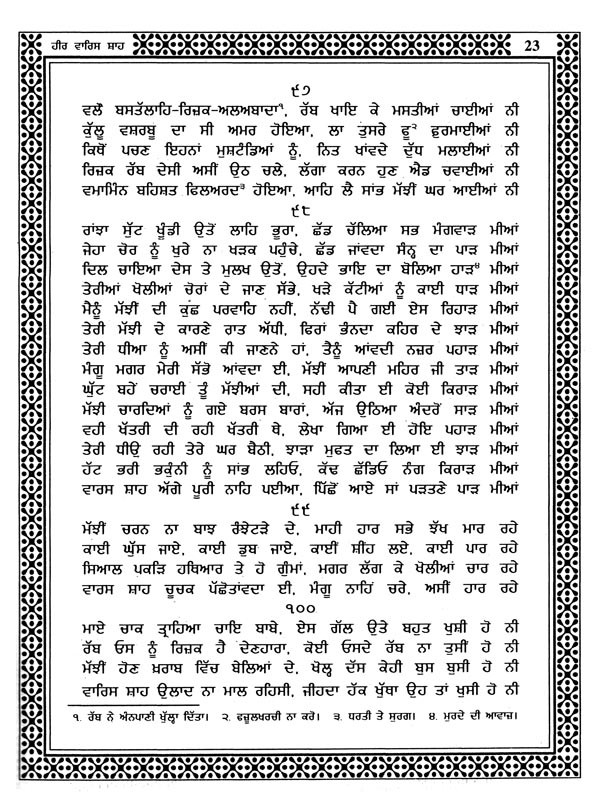 ਹੀਰ ਵਾਰਿਸ ਸ਼ਾਹ 23
੯੭
ਵਲੌ ਬਸਤੱਲਾਹਿ-ਰਿਜ਼ਕ-ਅਲਅਬਾਦਾ੧, ਰੱਬ ਖਾਇ ਕੇ ਮਸਤੀਆਂ ਚਾਈਆਂ ਨੀ
ਕੁੱਲੂ ਵਸ਼ਰਬੂ ਦਾ ਸੀ ਅਮਰ ਹੋਇਆ, ਲਾ ਤੁਸਰੇ ਫੂ੨ ਫੁਰਮਾਈਆਂ ਨੀ
ਕਿਥੋਂ ਪਚਣ ਇਹਨਾਂ ਮੁਸ਼ਟੰਡਿਆਂ ਨੂੰ, ਨਿਤ ਖਾਂਵਦੇ ਦੁੱਧ ਮਲਾਈਆਂ ਨੀ
ਰਿਜ਼ਕ ਰੱਬ ਦੇਸੀ ਅਸੀਂ ਉਠ ਚਲੇ, ਲੱਗਾ ਕਰਨ ਹੁਣ ਐਡ ਚਵਾਈਆਂ ਨੀ
ਵਮਾਮਿੰਨ ਬਹਿਸ਼ਤ ਫਿਲਅਰਦ੩ ਹੋਇਆ, ਆਹਿ ਲੈ ਸਾਂਭ ਮੱਝੀਂ ਘਰ ਆਈਆਂ ਨੀ
੯੮
ਰਾਂਝਾ ਸੁੱਟ ਖੂੰਡੀ ਉਤੋਂ ਲਾਹਿ ਭੂਰਾ, ਛੱਡ ਚੱਲਿਆ ਸਭ ਮੰਗਵਾੜ ਮੀਆਂ
ਜੇਹਾ ਚੋਰ ਨੂੰ ਖੁਰੇ ਨਾ ਖੜਕ ਪਹੁੰਚੇ, ਛੱਡ ਜਾਂਵਦਾ ਸੰਨ੍ਹ ਦਾ ਪਾੜ ਮੀਆਂ
ਦਿਲ ਚਾਇਆ ਦੇਸ ਤੇ ਮੁਲਖ ਉਤੋਂ, ਉਹਦੇ ਭਾਇ ਦਾ ਬੋਲਿਆ ਹਾੜ੪ ਮੀਆਂ
ਤੇਰੀਆਂ ਖੋਲੀਆਂ ਚੋਰਾਂ ਦੇ ਜਾਣ ਸੱਭੇ, ਖੜੇ ਕੱਟੀਆਂ ਨੂੰ ਕਾਈ ਧਾੜ ਮੀਆਂ
ਮੈਨੂੰ ਮੱਝੀਂ ਦੀ ਕੁਛ ਪਰਵਾਹਿ ਨਹੀਂ, ਨੱਢੀ ਪੈ ਗਈ ਏਸ ਰਿਹਾੜ ਮੀਆਂ
ਤੇਰੀ ਮੱਝੀਂ ਦੇ ਕਾਰਣੇ ਰਾਤ ਅੱਧੀ, ਫਿਰਾਂ ਭੰਨਦਾ ਕਹਿਰ ਦੇ ਝਾੜ ਮੀਆਂ
ਤੇਰੀ ਧੀਆ ਨੂੰ ਅਸੀਂ ਕੀ ਜਾਣਨੇ ਹਾਂ, ਤੈਨੂੰ ਆਂਵਦੀ ਨਜ਼ਰ ਪਹਾੜ ਮੀਆਂ
ਮੰਗੂ ਮਗਰ ਮੇਰੀ ਸੱਭੋ ਆਂਵਦਾ ਈ, ਮੱਝੀਂ ਆਪਣੀ ਮਹਿਰ ਜੀ ਤਾੜ ਮੀਆਂ
ਘੁੱਟ ਬਹੇਂ ਚਰਾਈ ਤੂੰ ਮੱਝੀਆਂ ਦੀ, ਸਹੀ ਕੀਤਾ ਈ ਕੋਈ ਕਿਰਾੜ ਮੀਆਂ
ਮੱਝੀ ਚਾਰਦਿਆਂ ਨੂੰ ਗਏ ਬਰਸ ਬਾਰਾਂ, ਅੱਜ ਉਠਿਆ ਅੰਦਰੋਂ ਸਾੜ ਮੀਆਂ
ਵਹੀ ਖੱਤਰੀ ਦੀ ਰਹੀ ਖੱਤਰੀ ਥੇ, ਲੇਖਾ ਗਿਆ ਈ ਹੋਇ ਪਹਾੜ ਮੀਆਂ
ਤੇਰੀ ਧੀਉ ਰਹੀ ਤੇਰੇ ਘਰ ਬੈਠੀ, ਝਾੜਾ ਮੁਫਤ ਦਾ ਲਿਆ ਈ ਝਾੜ ਮੀਆਂ
ਹੱਟ ਭਰੀ ਭਕੁੰਨੀ ਨੂੰ ਸਾਂਭ ਲਹਿਓ, ਕੱਢ ਛੱਡਿਓ ਨੰਗ ਕਿਰਾੜ ਮੀਆਂ
ਵਾਰਸ ਸ਼ਾਹ ਅੱਗੇ ਪੂਰੀ ਨਾਹਿ ਪਈਆ, ਪਿੱਛੋਂ ਆਏ ਸਾਂ ਪੜਤਣੇ ਪਾੜ ਮੀਆਂ
੯੯
ਮੱਝੀਂ ਚਰਨ ਨਾ ਬਾਝ ਰੰਝੇਟੜੇ ਦੇ, ਮਾਹੀ ਹਾਰ ਸਭੇ ਝੱਖ ਮਾਰ ਰਹੇ
ਕਾਈ ਘੁੱਸ ਜਾਏ, ਕਾਈ ਡੁਬ ਜਾਏ, ਕਾਈਂ ਸ਼ੀਂਹ ਲਏ, ਕਾਈ ਪਾਰ ਰਹੇ
ਸਿਆਲ ਪਕੜਿ ਹਥਿਆਰ ਤੇ ਹੋ ਗੁੰਮਾਂ, ਮਗਰ ਲੱਗ ਕੇ ਖੋਲੀਆਂ ਚਾਰ ਰਹੇ
ਵਾਰਸ ਸ਼ਾਹ ਚੂਚਕ ਪੱਛੋਤਾਂਵਦਾ ਈ, ਮੰਗੂ ਨਾਹਿੰ ਚਰੇ, ਅਸੀਂ ਹਾਰ ਰਹੇ
੧੦੦
ਮਾਏ ਚਾਕ ਤ੍ਰਾਹਿਆ ਚਾਇ ਬਾਬੇ, ਏਸ ਗੱਲ ਉਤੇ ਬਹੁਤ ਖੁਸ਼ੀ ਹੋ ਨੀ
ਰੱਬ ਓਸ ਨੂੰ ਰਿਜ਼ਕ ਹੈ ਦੇਣਹਾਰਾ, ਕੋਈ ਓਸਦੇ ਰੱਬ ਨਾ ਤੁਸੀਂ ਹੋ ਨੀ
ਮੱਝੀਂ ਹੋਣ ਖ਼ਰਾਬ ਵਿੱਚ ਬੇਲਿਆਂ ਦੇ, ਖੋਲ੍ਹ ਦੱਸ ਕੇਹੀ ਬੁਸ ਬੁਸੀ ਹੋ ਨੀ
ਵਾਰਿਸ ਸ਼ਾਹ ਉਲਾਦ ਨਾ ਮਾਲ ਰਹਿਸੀ, ਜੀਹਦਾ ਹੱਕ ਖੁੱਥਾ ਉਹ ਤਾਂ ਖੁਸੀ ਹੋ ਨੀ
੧. ਰੱਬ ਨੇ ਅੰਨਪਾਣੀ ਖੁੱਲ੍ਹਾ ਦਿੱਤਾ। ੨. ਫਜ਼ੂਲਖਰਚੀ ਨਾ ਕਰੋ। ੩. ਧਰਤੀ ਤੇ ਸੁਰਗ। ੪. ਮੁਰਦੇ ਦੀ ਆਵਾਜ਼।